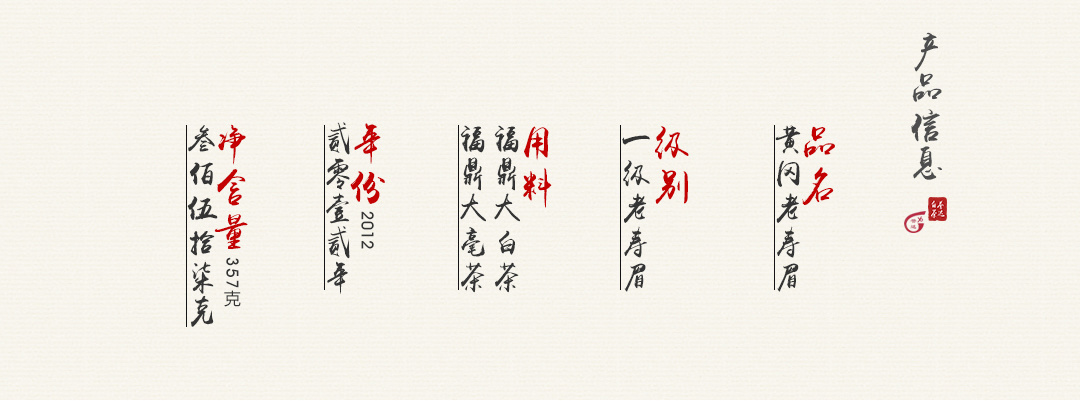 产品信息
品名
黄冈老寿眉
级别
一级老寿眉
用料
福鼎大白茶
福鼎大毫茶
年份 2012
贰零壹贰年
净含量 357克
叁佰伍拾柒克